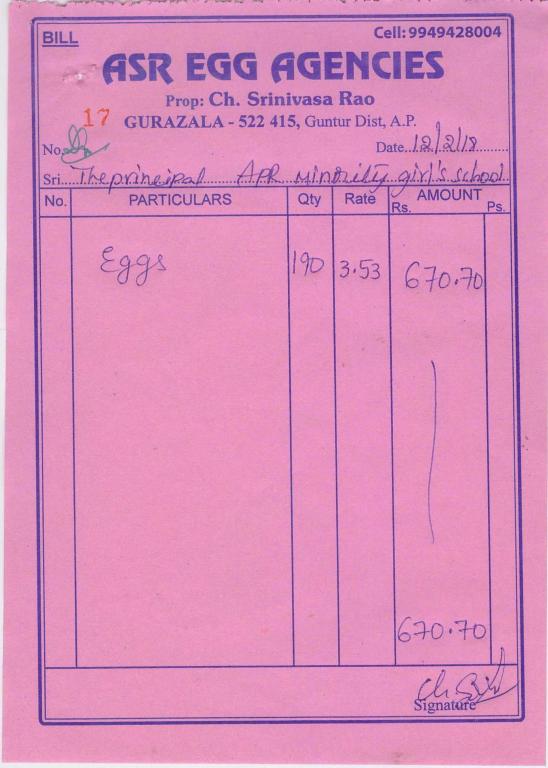 BILL
Cell: 9949428004
ASR EGG AGENCIES
Prop: Ch. Srinivasa Rao
17
GURAZALA - 522 415, Guntur Dist, A.P.
No.
Date. 12/2/18
Sri. The principal APR minority girl's school
No. PARTICULARS Qty Rate AMOUNT
Rs. Ps.
Eggs 190 3.53 670.70
670.70
Signature